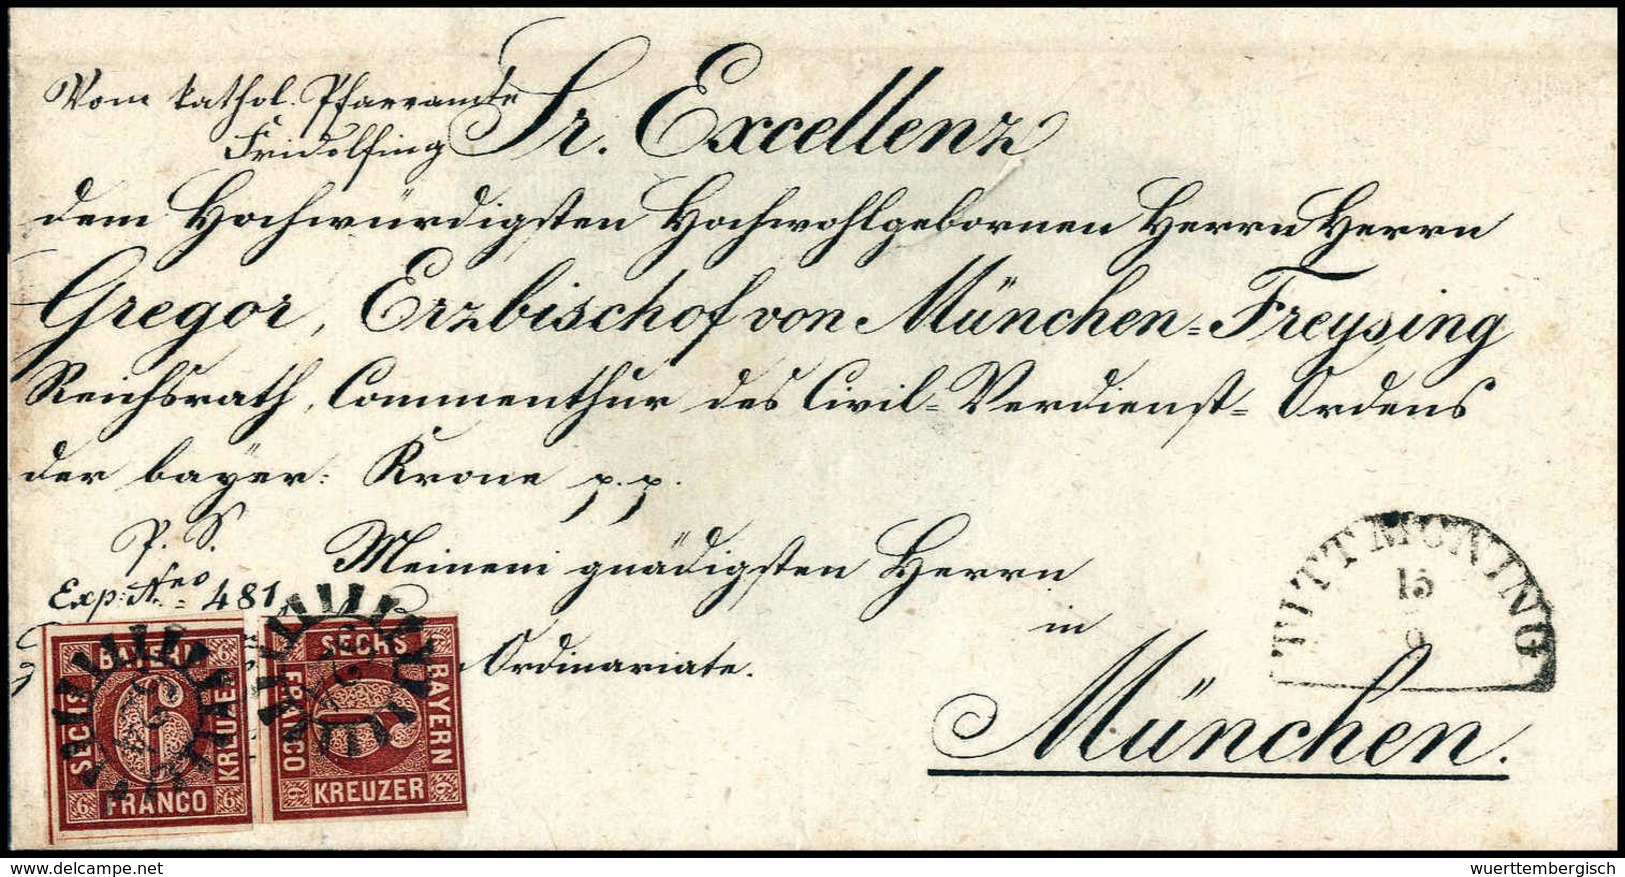 Vom kathol. Pfarramte
Fridolfing
Sr. Excellenz
dem Hochwürdigsten Hochwohlgebornen Herrn Herrn
Gregor, Erzbischof von München=Freysing
Reichsrath, Commenthur des Civil=Verdienst=Ordens
der bayer: Krone p. p.
P. S.
Meinem gnädigsten Herrn
Exp: Nro 481
in
Ordinariate.
München.
TITTMONING
15
9
BAYERN
SECHS
KREUZER
FRANCO
6 6 6
SECHS
FRANCO
BAYERN
KREUZER
6 6
wuerttembergisch